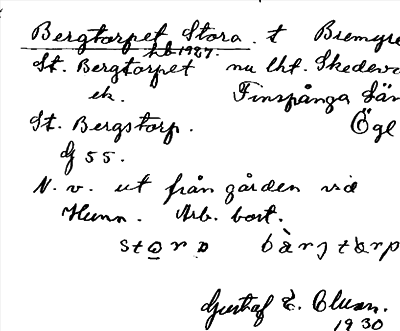 Bergtorpet Stora . t Bremgre
hb 1927.
St. Bergtorpet nu lht. Skedevi
ek. Finspånga Län
St. Bergstorp. Ögl
G 55.
N. v. ut från gården vid
Hunn. Arb. bost.
Gustaf E. Clusn.
1930